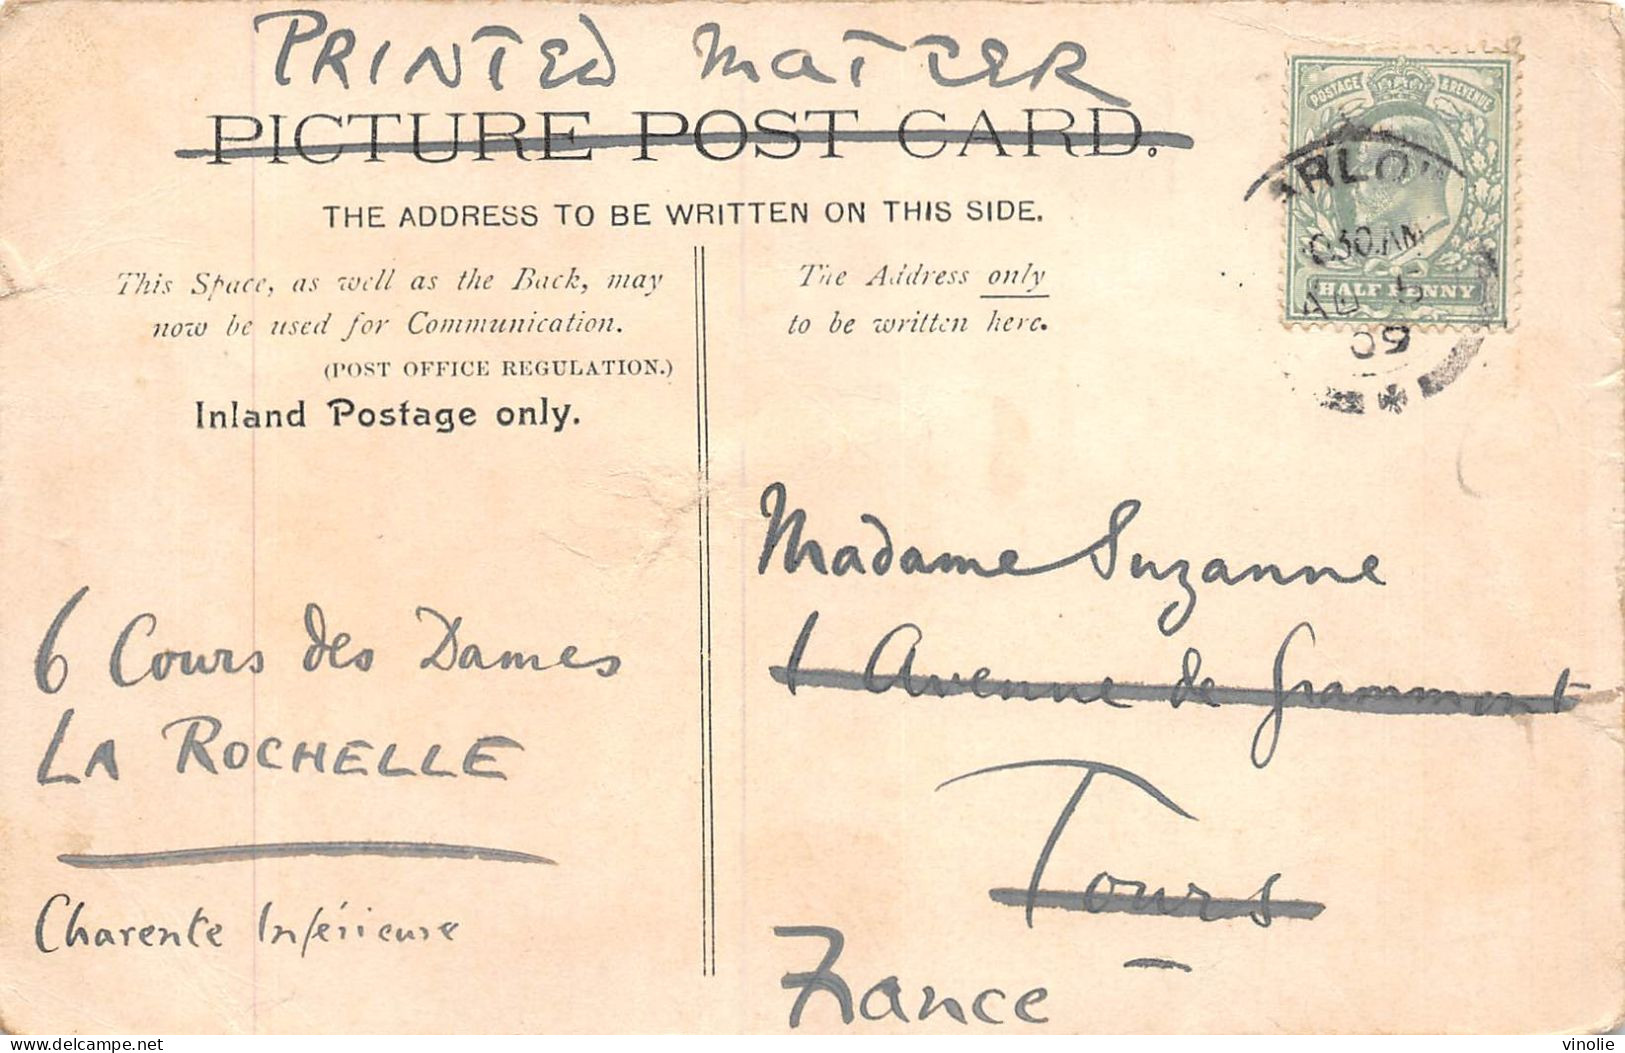 PRINTED MATTER
PICTURE POST CARD.
THE ADDRESS TO BE WRITTEN ON THIS SIDE.
This Space, as well as the Back, may
now be used for Communication.
(POST OFFICE REGULATION.)
Inland Postage only.
The Address only
to be written here.
POSTAGE & REVENUE
HALF PENNY
30 AM
5
09
6 Cours des Dames
LA ROCHELLE
Charente Inférieure
Madame Suzanne
1 Avenue de Grammont
Tours
France
delcampe.net
vinolie